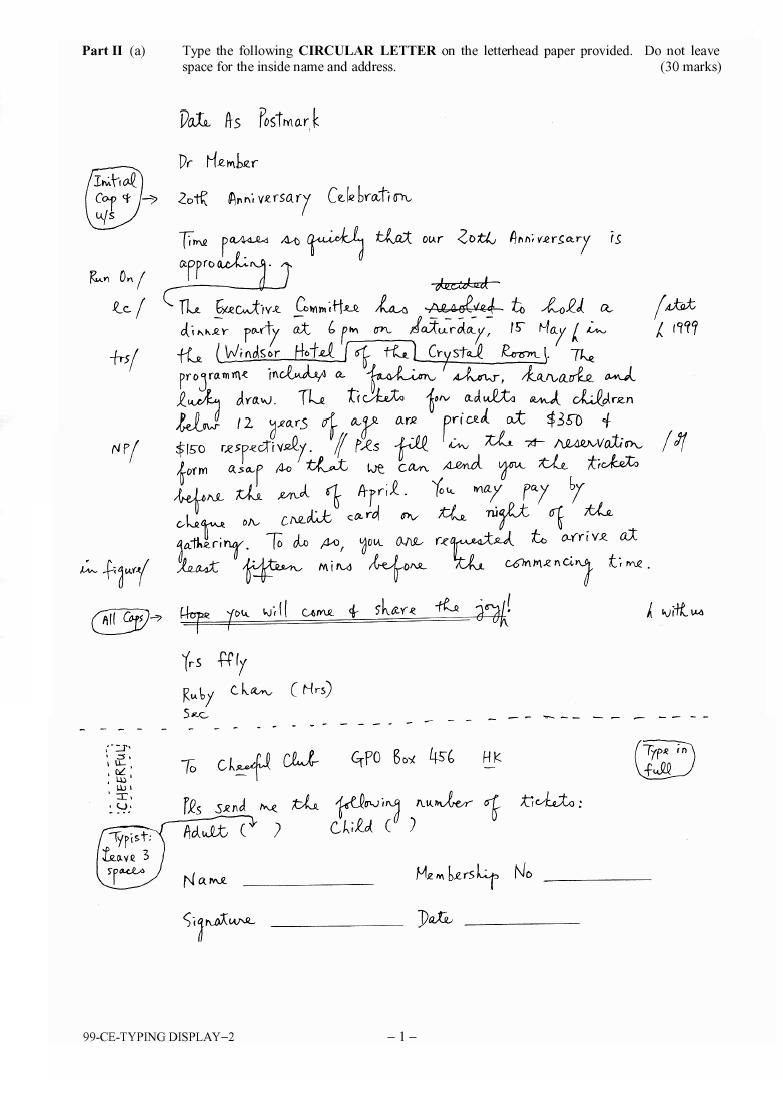 Part II (a) Type the following CIRCULAR LETTER on the letterhead paper provided. Do not leave
space for the inside name and address. (30 marks)
Date As Postmark
Dr Member
Initial
Cap &
u/s
20th Anniversary Celebration
Time passes so quickly that our 20th Anniversary is
approaching.
Run On/
decided
lc/ The Executive Committee has resolved to hold a /stet
dinner party at 6 pm on Saturday, 15 May in 1999
trs/ the Windsor Hotel of the Crystal Room. The
programme includes a fashion show, karaoke and
lucky draw. The tickets for adults and children
below 12 years of age are priced at $350 &
NP/ $150 respectively. // Pls fill in the reservation
form asap so that we can send you the tickets
before the end of April. You may pay by
cheque or credit card on the night of the
gathering. To do so, you are requested to arrive at
in figure/ least fifteen mins before the commencing time.
All Caps Hope you will come & share the joy! with us
Yrs ffly
Ruby Chan (Mrs)
Sec
CHEERFUL
To Cheeful Club GPO Box 456 HK
Type in
full
Pls send me the following number of tickets:
Adult ( ) Child ( )
Typist:
Leave 3
spaces
Name Membership No
Signature Date
99-CE-TYPING DISPLAY–2 – 1 –